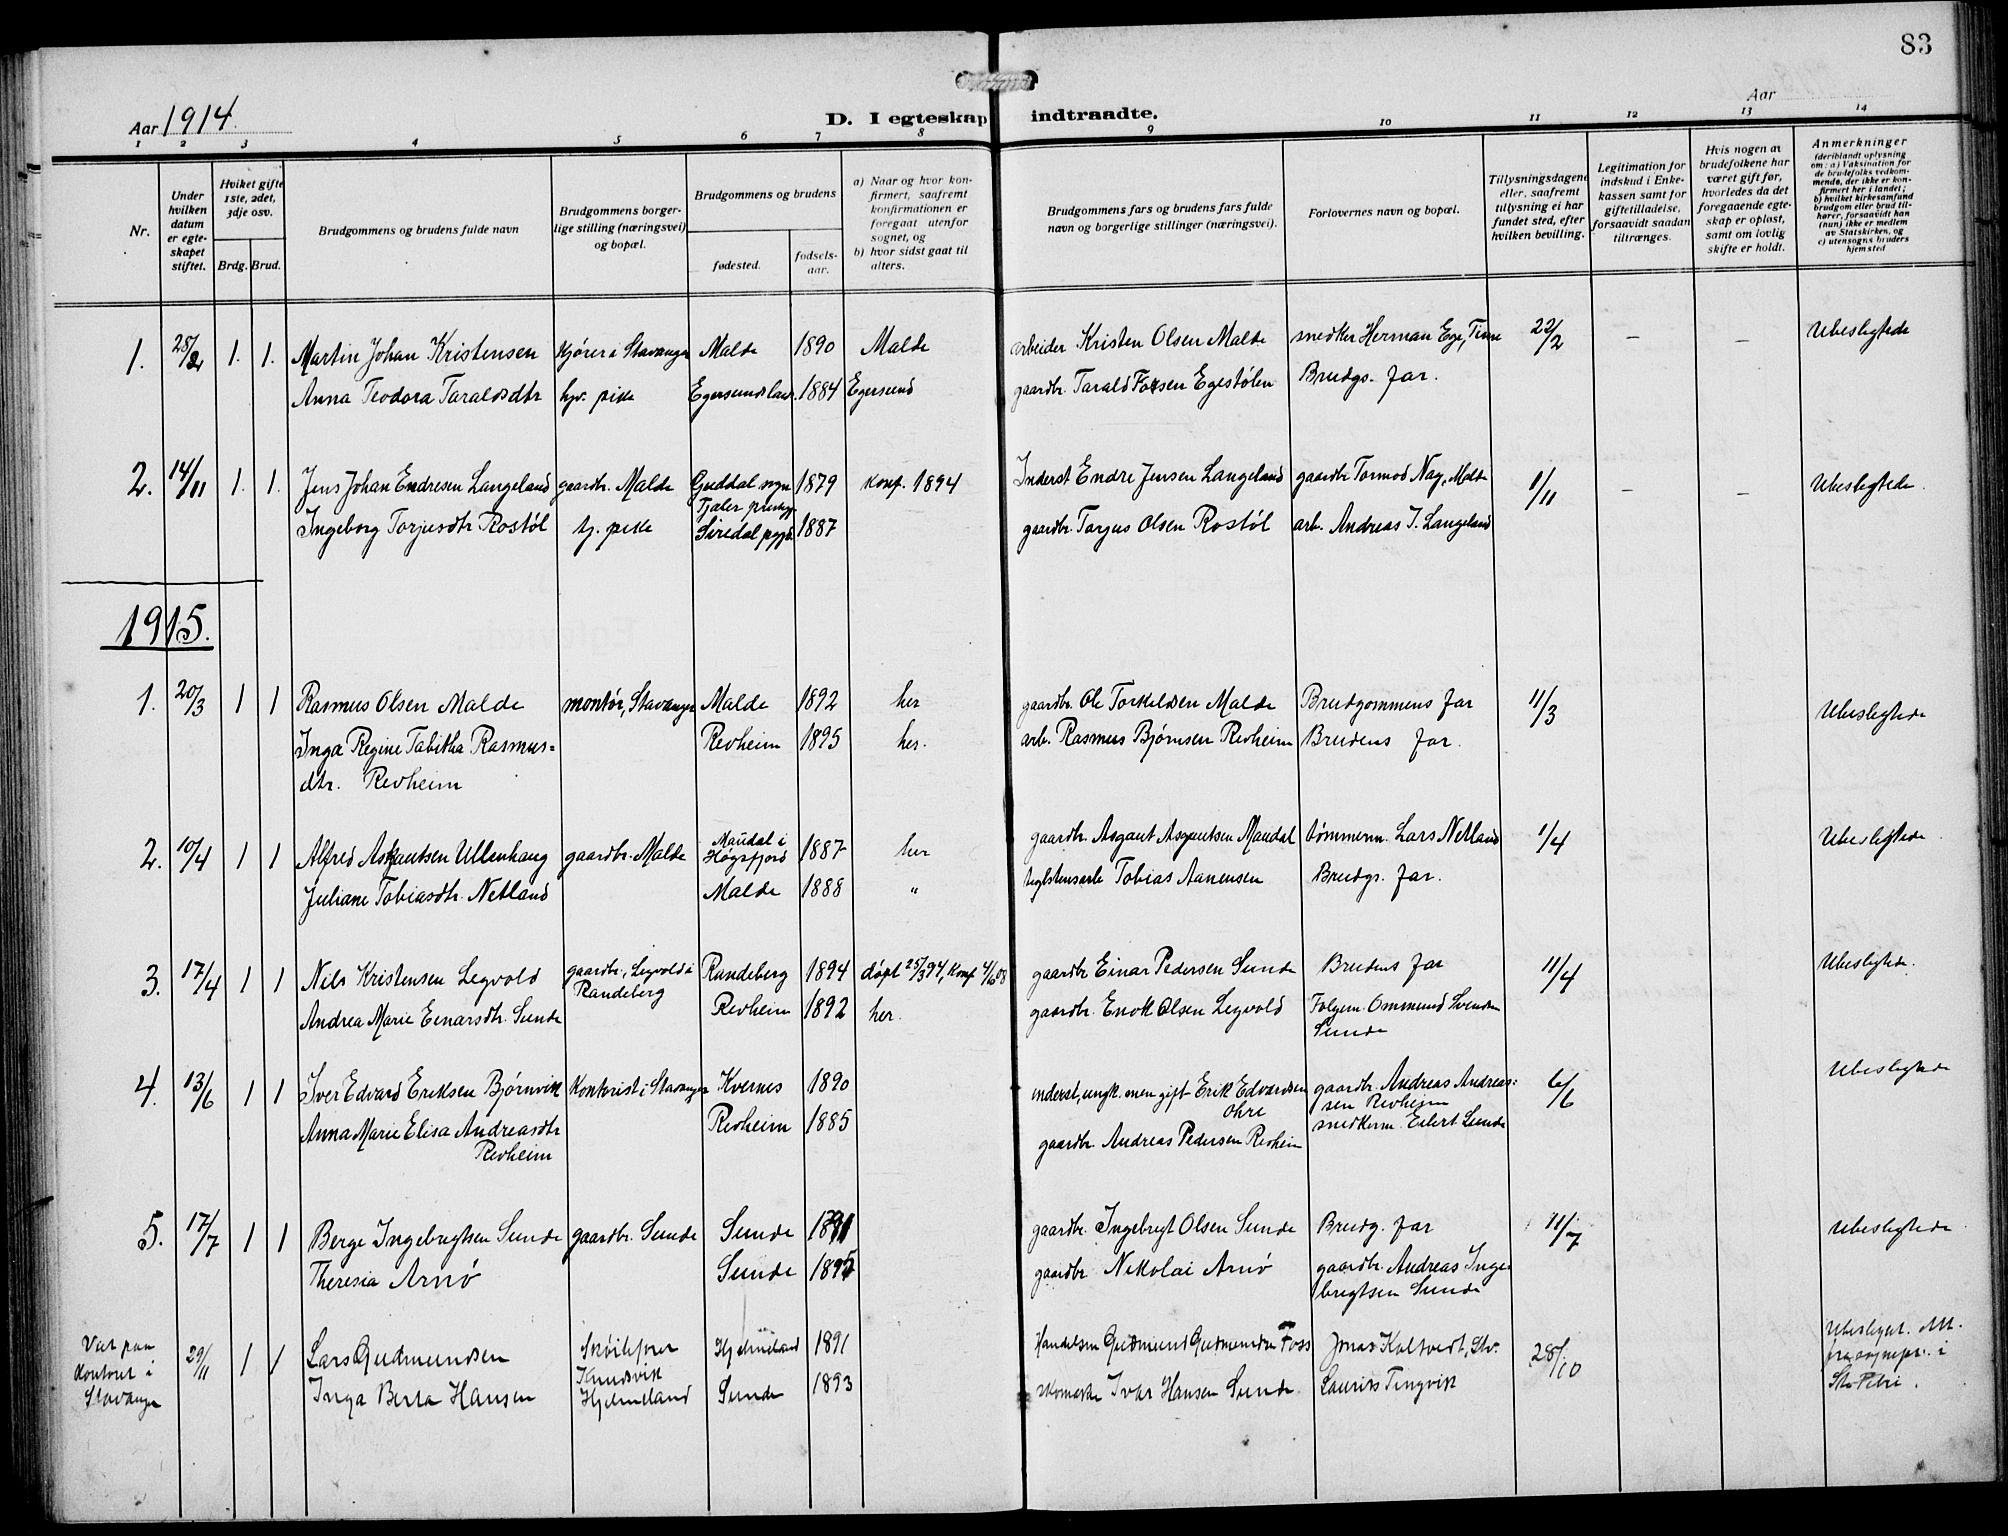 83
Aar 1914.
D. I egteskap indtraadte.
Aar
1 2 3 4 5 6 7 8 9 10 11 12 13 14
Nr.
Under hvilken datum er egteskapet stiftet.
Hvilket gifte 1ste, 2det, 3dje osv.
Brdg. Brud.
Brudgommens og brudens fulde navn
Brudgommens borgerlige stilling (næringsvei) og bopæl.
Brudgommens og brudens
fødested.
fødselsaar.
a) Naar og hvor konfirmert, saafremt konfirmationen er foregaat utenfor sognet, og
b) hvor sidst gaat til alters.
Brudgommens fars og brudens fars fulde navn og borgerlige stillinger (næringsvei).
Forlovernes navn og bopæl.
Tillysningsdagene eller, saafremt tillysning ei har fundet sted, efter hvilken bevilling.
Legitimation for indskud i Enkekassen samt for giftetilladelse, forsaavidt saadan tiltrænges.
Hvis nogen av brudefolkene har været gift før, hvorledes da det foregaaende egteskap er opløst, samt om lovlig skifte er holdt.
Anmerkninger
(deriblandt oplysning om: a) Vaksination for de brudefolks vedkommende, der ikke er konfirmert her i landet; b) hvilket kirkesamfund brudgom eller brud tilhører, forsaavidt han (hun) ikke er medlem av Statskirken, og c) utensogns bruders hjemsted
1. 28/2 1. 1. Martin Johan Kristensen kjører i Stavanger Malde 1890 Malde arbeider Kristen Olsen Malde snedker Herman Ege, Time 22/2 – – Ubeslegtede
Anna Teodora Taraldsdtr hjv. pike Egersundslan. 1884 Egersund gaardbr. Tarald Egestølen Brudgs. far.
2. 14/11 1. 1. Jens Johan Endresen Langeland gaardbr. Malde Guddal sogn 1879 konf. 1894 Inderst Endre Jensen Langeland gaardbr Tormod Nag, Malde 1/11 – – Ubeslegtede
Fjaler prestgj.
Ingeborg Torjusdtr Rostøl tj. pike Siredal pgjd. 1887 gaardbr. Torjus Olsen Rostøl arb. Andreas J. Langeland
1915.
1. 20/3 1 1 Rasmus Olsen Malde montør, Stavanger Malde 1892 her gaardbr. Ole Torkelsen Malde Brudgommens far 11/3 Ubeslegtede
Inga Regine Tabitha Rasmus= Revheim 1895 her. arb. Rasmus Bjørnsen Revheim Brudens far.
dtr. Revheim
2. 10/4 1 1 Alfred Asgautsen Ullenhaug gaardbr. Malde Maudal i Høgsfjord 1887 her gaardbr. Asgaut Asgautsen Maudal tømmerm. Lars Netland 1/4 Ubeslegtede
Juliane Tobiasdtr. Netland Malde 1888 " teglstensarb Tobias Aanensen Brudgs. far.
3. 17/4 1 1 Nils Kristensen Legvold gaardbr., Legvold i Randeberg Randeberg 1894 døpt 25/3 94, konf 4/10 08 gaardbr Einar Pedersen Sunde Brudens far 11/4 Ubeslegtede.
Andrea Marie Einarsdtr. Sunde Revheim 1892 her. gaardbr. Enok Olsen Legvold Følgem. Ommund Svendsen
Sunde
4. 13/6 1 1 Iver Edvard Eriksen Bjørnvik kontorist i Stavanger Kvernes 1890 inderst, ungk. men gift Erik Edvardsen gaardbr. Andreas Andreas= 6/6 Ubeslegtede
Ohre sen Revheim
Anna Marie Elisa Andreasdtr Revheim 1885 snedkerm. Eilert Sunde
Revheim gaardbr. Andreas Pedersen Revheim
5. 17/7 1 1 Berge Ingebrigtsen Sunde gaardbr. Sunde Sunde 1891 gaardbr. Ingebrigt Olsen Sunde Brudg. far 11/7 Ubeslegtede
Theresia Arnø Sunde 1895 gaardbr Nikolai Arnø gaardbr. Andreas Inge-
brigtsen Sunde
Viet paa kontoret i Stavanger 29/11 1 1 Lars Gudmundsen Knudsvik Hjelmeland Hjelmeland 1891 Handelsm Gudmund Gudmundsen Foss Jonas Koltvedt, Stv. 28/10 Ubeslegt. Att. fra sognepr. i St. Petri.
Inga Berta Hansen Sunde 1893 skomaker Ivar Hansen Sunde Laurits Tingvik